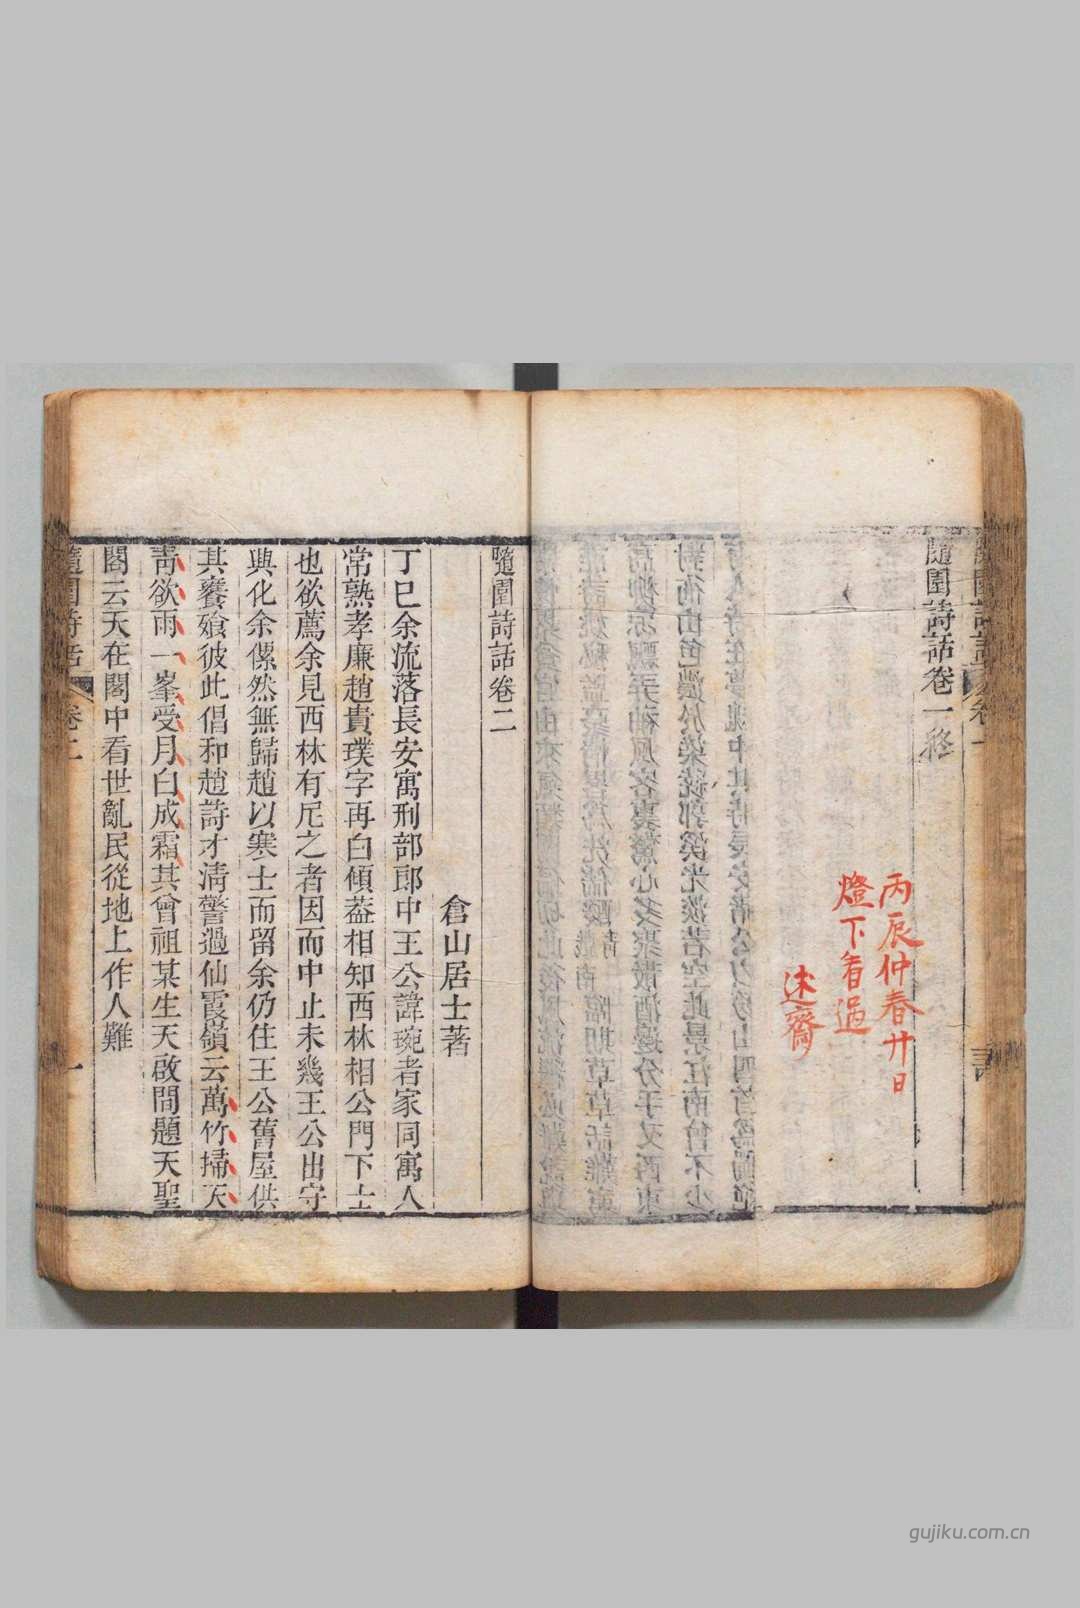 隨園詩話卷一終
丙辰仲春廿日
燈下看過
述齋
隨園詩話卷二
倉山居士著
丁巳余流落長安寓刑部郎中王公諱琬者家同寓人
常熟孝廉趙貴璞字再白傾葢相知西林相公門下士
也欲薦余見西林有尼之者因而中止未幾王公出守
興化余傫然無歸趙以寒士而留余仍住王公舊屋供
其饔飱彼此倡和趙詩才清警過仙霞嶺云萬竹掃天
靑欲雨一峯受月白成霜其曾祖某生天啟間題天聖
閣云天在閣中看世亂民從地上作人難
隨園詩話
卷二
一
gujiku.com.cn